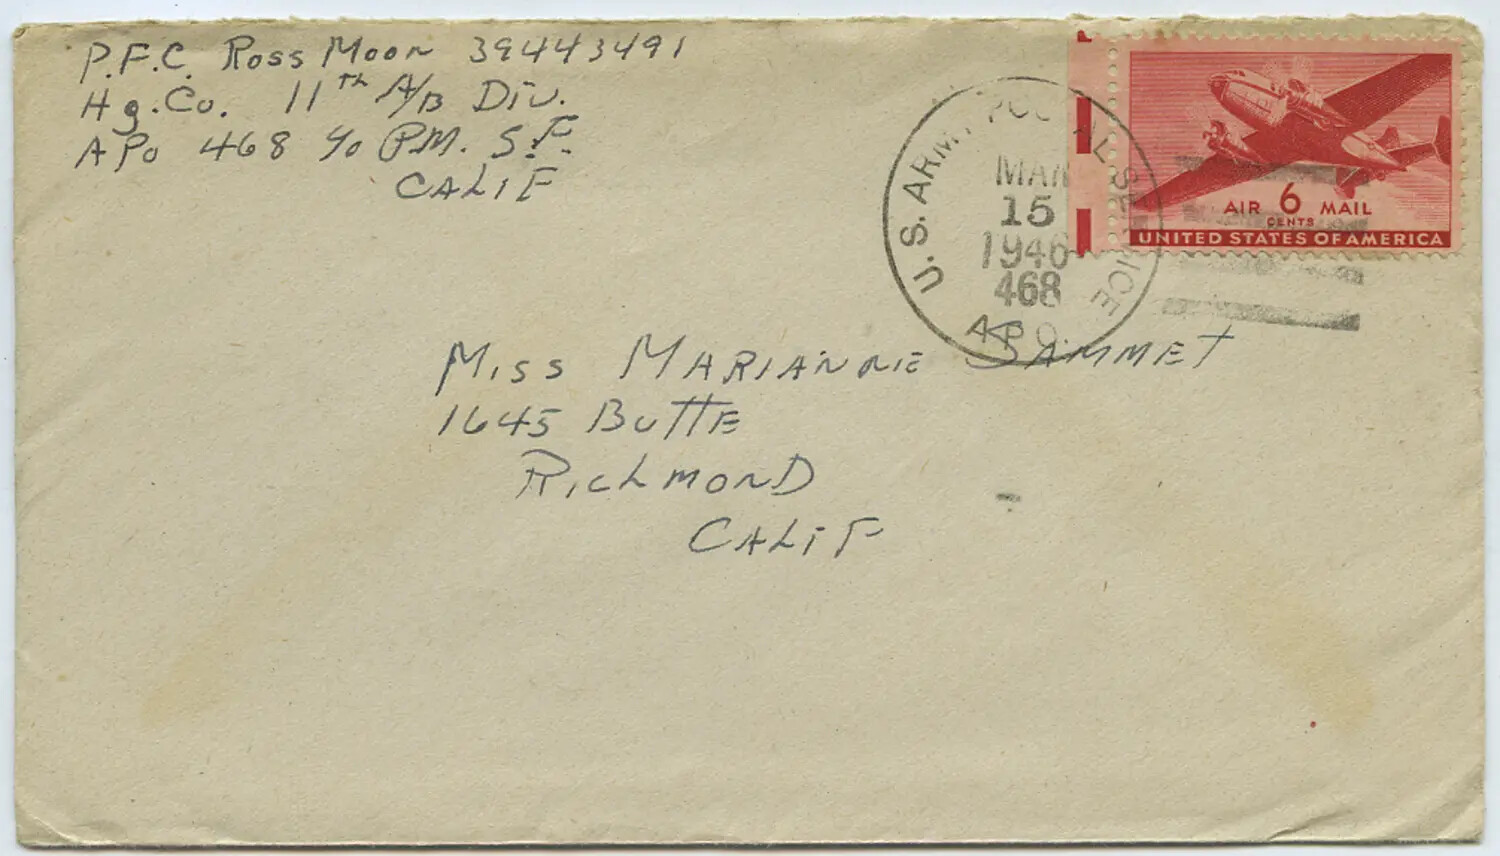 P.F.C. Ross Moon 39443491
Hq. Co. 11th A/B Div.
APo 468 c/o PM. S.F.
CALIF
U.S. ARMY POSTAL SERVICE
MAR
15
1946
468
A.P.O.
AIR 6 MAIL
CENTS
UNITED STATES OF AMERICA
Miss MARIANNE SAMMET
1645 BUTTE
RICHMOND
CALIF